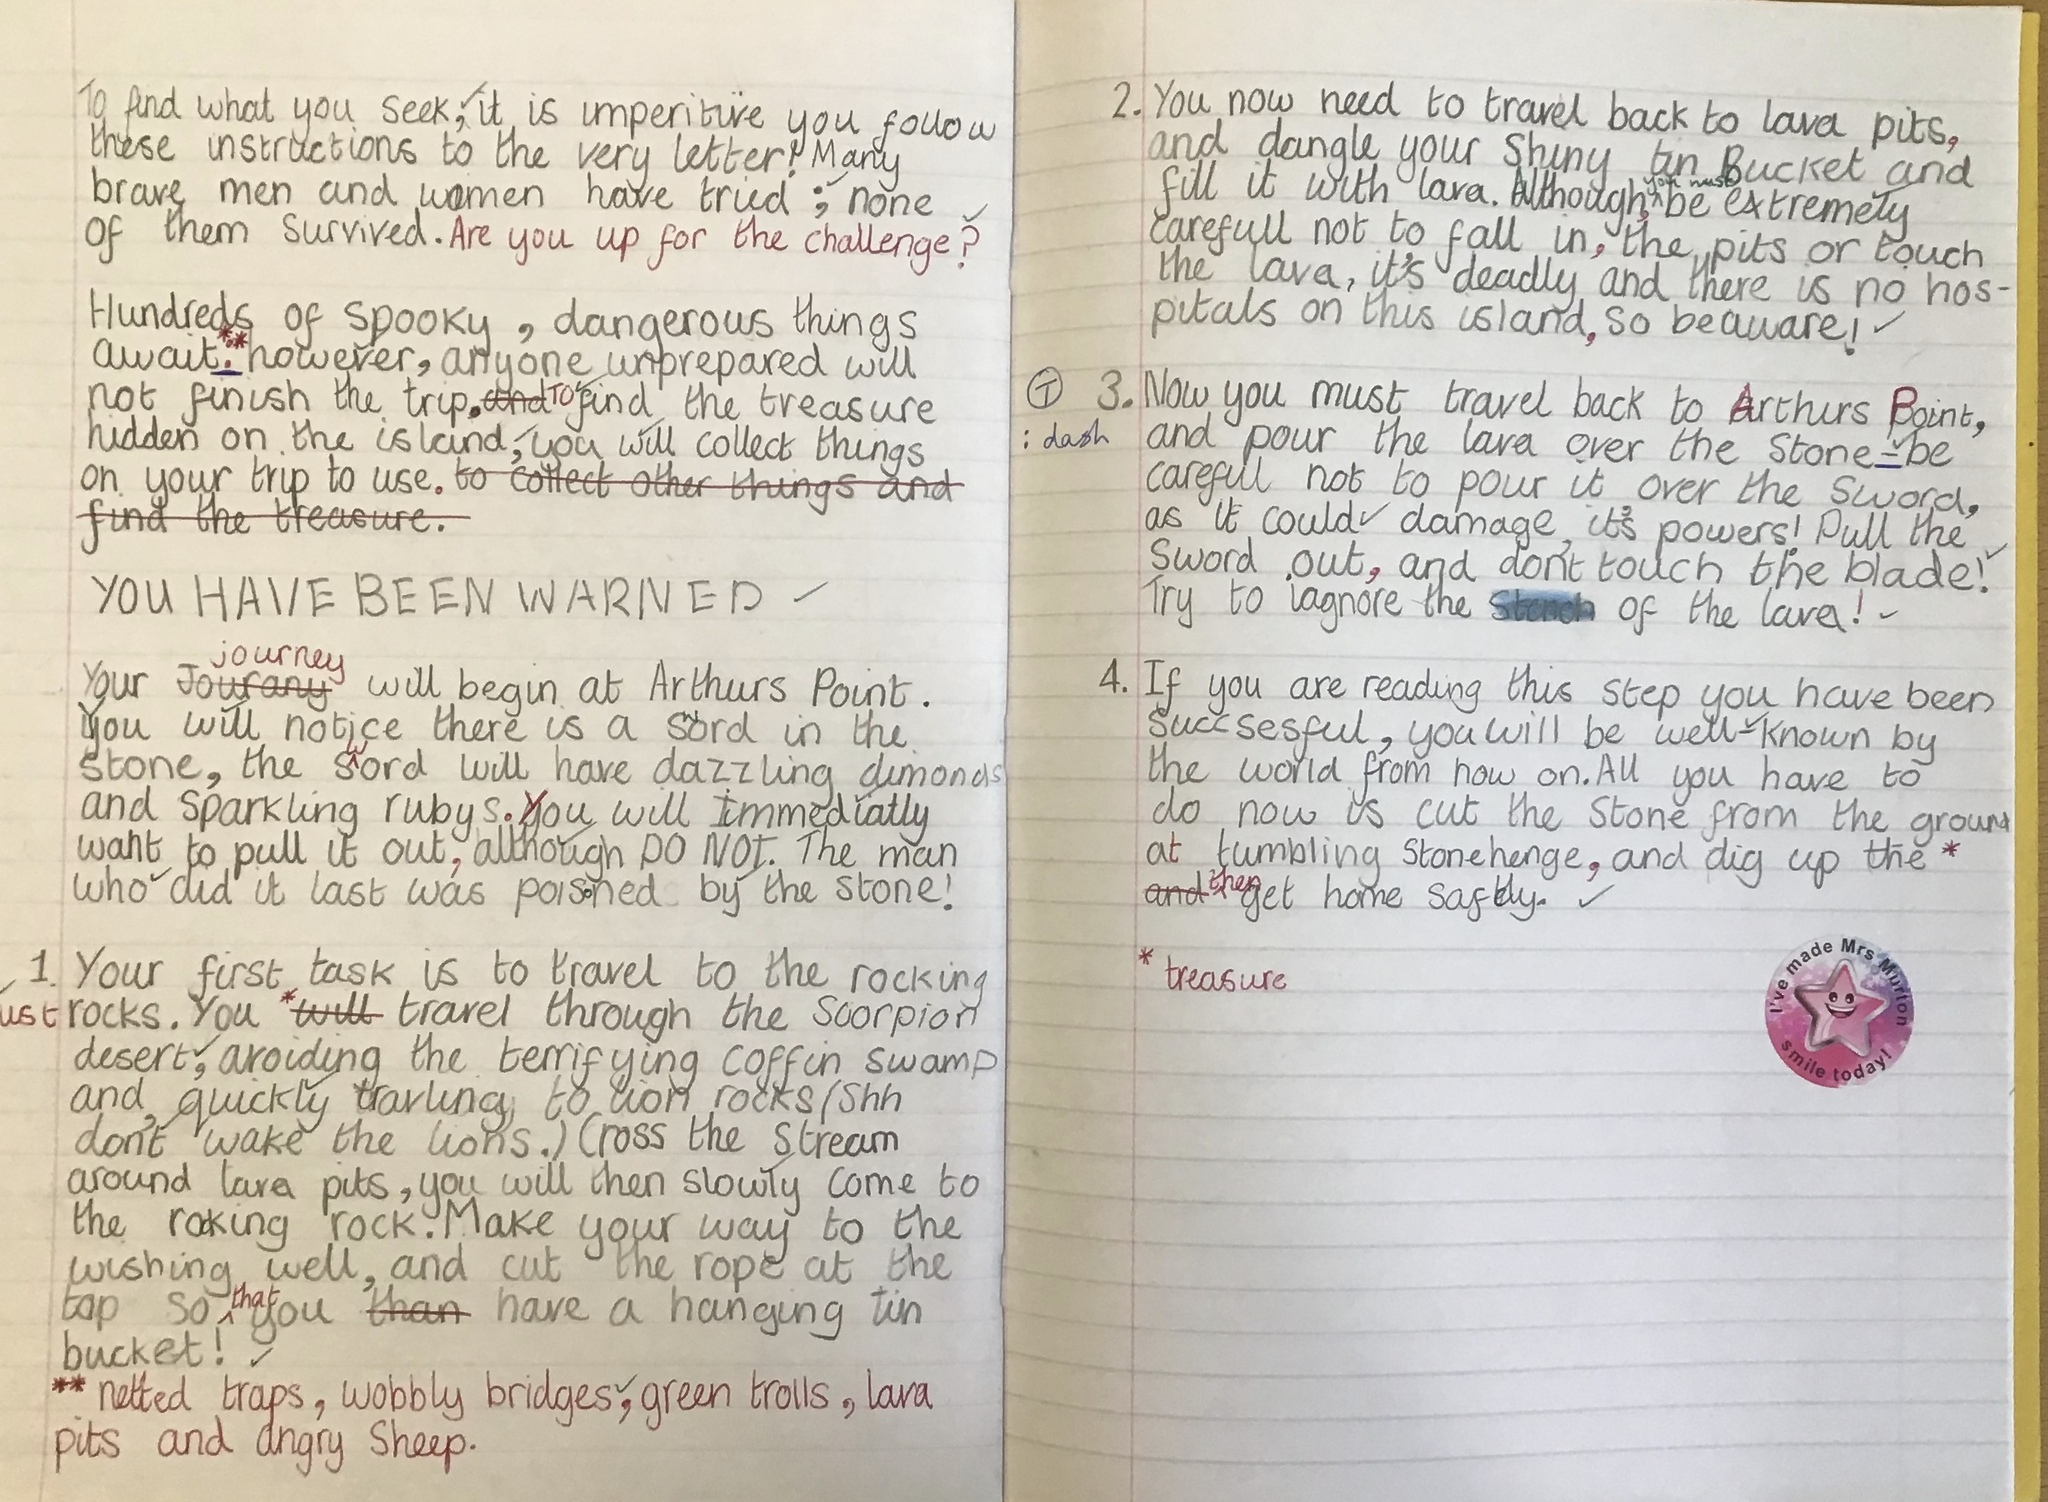 To find what you seek, it is imperitive you follow
these instructions to the very letter! Many
brave men and women have tried ; none
of them survived. Are you up for the challenge?
Hundreds of spooky, dangerous things
await.** however, anyone unprepared will
not finish the trip. and To find the treasure
hidden on the island, you will collect things
on your trip to use. to collect other things and
find the treasure.
YOU HAVE BEEN WARNED
journey
Your Jourany will begin at Arthurs Point.
You will notice there is a sword in the
stone, the sword will have dazzling dimonds
and sparkling rubys. You will immediatly
want to pull it out, although DO NOT. The man
who did it last was poisned by the stone!
1. Your first task is to travel to the rocking
ust rocks. You *will travel through the Scorpion
desert, avoiding the terrifying coffin swamp
and, quickly travling, to lion rocks (Shh
don't wake the lions.) Cross the stream
around lava pits, you will then slowly come to
the rocking rock. Make your way to the
wishing well, and cut the rope at the
top so that you than have a hanging tin
bucket!
** netted traps, wobbly bridges, green trolls, lava
pits and angry sheep.
2. You now need to travel back to lava pits,
and dangle your shiny tin Bucket and
fill it with lava. Although, you must be extremely
carefull not to fall in, the pits or touch
the lava, it's deadly and there is no hos-
pitals on this island, so beaware!
T 3. Now you must travel back to Arthurs Point,
: dash and pour the lava over the stone - be
carefull not to pour it over the sword,
as it could damage it's powers! Pull the
sword out, and don't touch the blade!
Try to iagnore the stench of the lava!
4. If you are reading this step you have been
succsesful, you will be well-known by
the world from now on. All you have to
do now is cut the stone from the ground
at tumbling Stonehenge, and dig up the *
and then get home safely.
* treasure
I've made Mrs Murton
smile today!